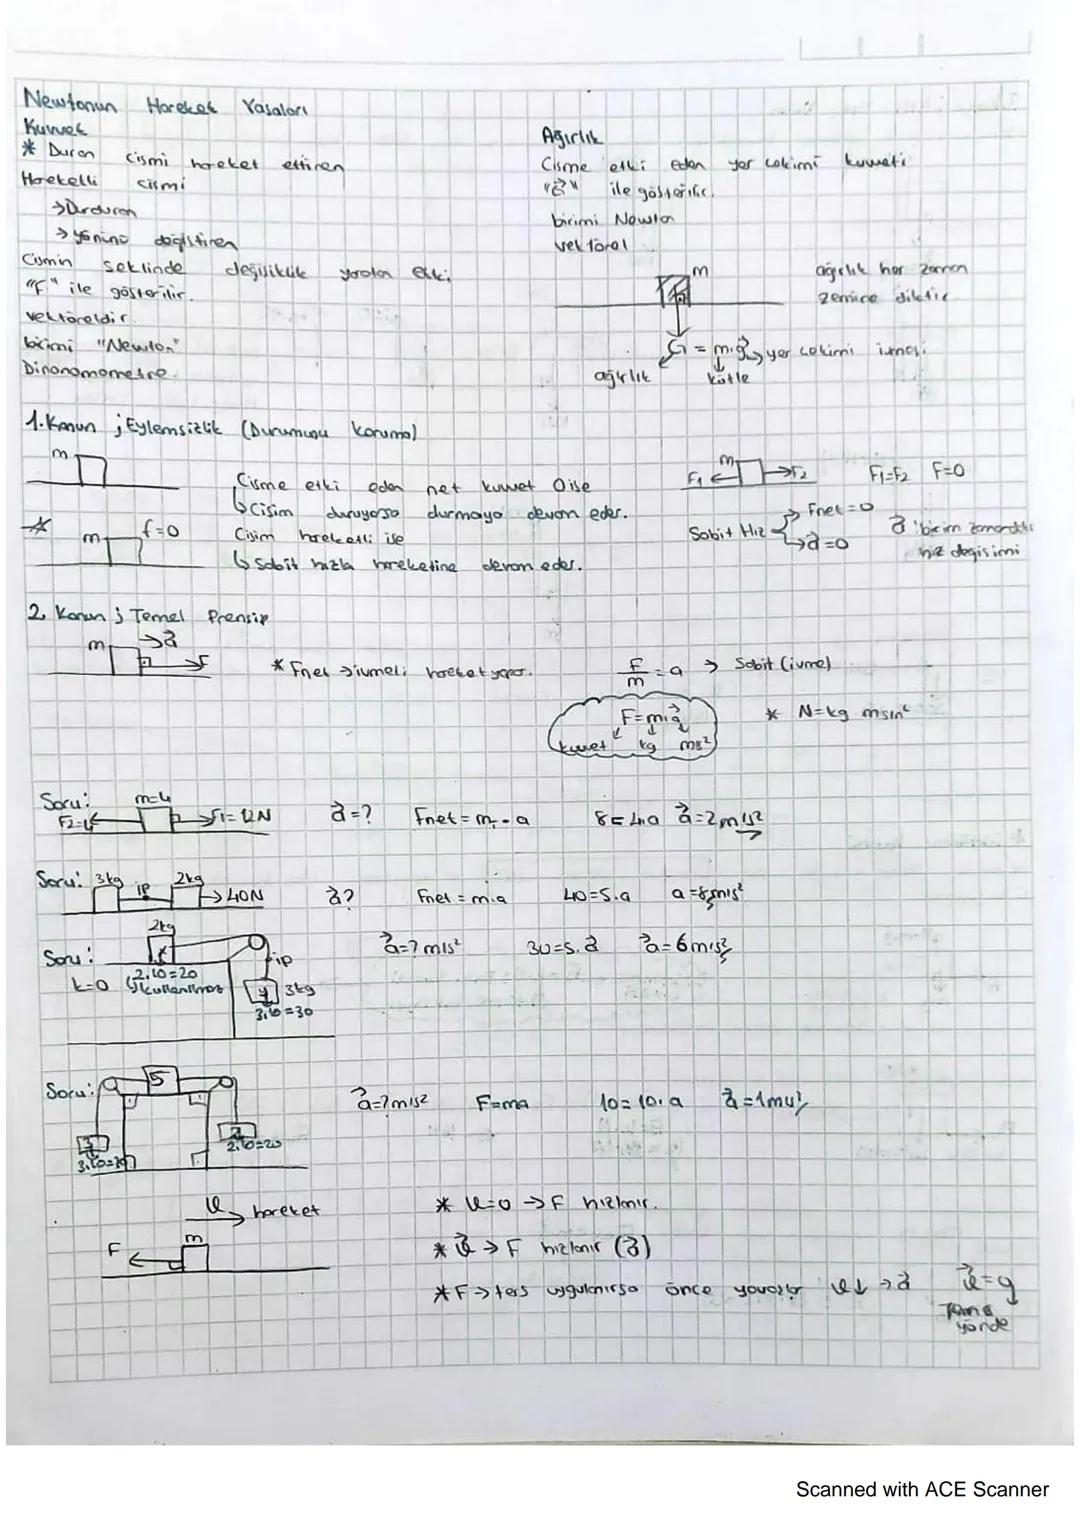 Newtonun Hareket Yasaları
Kuvvet
* Duran cismi hareket ettiren
Hareketli cismi
→ Durduran
→ yönünü değiştiren
Cismin şeklinde değişiklik yaratan etki
"F" ile gösterilir.
vektöreldir
birimi "Newton"
Dinanomometre
Ağırlık
Cisme etki eden yer çekimi kuvveti
"G" ile gösterilir.
birimi Newton
vektörel
m
ağırlık her zaman
zemine diktir
G = m.g → yer çekimi ivmesi
ağırlık kütle
1. Kanun ; Eylemsizlik (Durumunu koruma)
m
Cisme etki eden net kuvvet 0 ise
↳ Cisim duruyorsa durmaya devam eder.
* m f=0
Cisim hareketli ise
↳ Sabit hızla hareketine devam eder.
F1 ← m → F2 F1=F2 F=0
Sabit Hız → Fnet=0
→ a=0
a: birim zamandaki
hız değişimi
2. Kanun ; Temel Prensip
m → a
→ F
* Fnet → ivmeli hareket yapar.
F/m = a → Sabit (ivme)
F=m.a
kuvvet kg ms²
* N=kg
Soru: m=4
F2=4 F1=12N a=? Fnet = m.a 8=4a a=2m/s²
Soru: 3kg ip 2kg → 40N a? Fnet = m.a 40=5.a a=8m/s²
Soru: 2kg ip a=? m/s² 30=5.a a=6m/s²
k=0 2.10=20
↳ kullanılmaz
3kg
3.10=30
Soru: 5 a=? m/s² F=ma 10=10.a a=1m/s²
3 2
3.10=30 2.10=20
→ hareket
F ← m
* v=0 → F hızlanır.
* v → F hızlanır (a)
* F → ters uygulanırsa önce yavaşlar v↓ → a
yönde